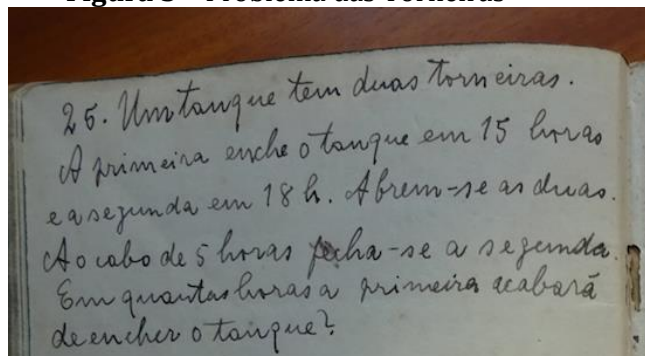 Figura 3 – Problema das Torneiras
26. Um tanque tem duas torneiras.
A primeira enche o tanque em 15 horas
e a segunda em 18 h. Abrem-se as duas.
Ao cabo de 5 horas fecha-se a segunda.
Em quantas horas a primeira acabará
de encher o tanque?